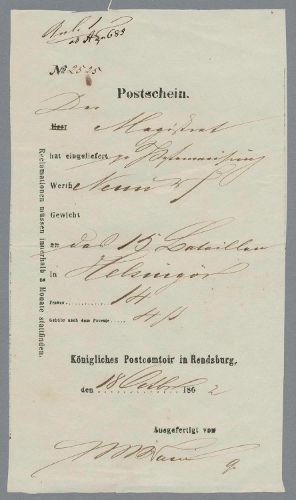 Anl. 1
ad No 683
No 2525
Postschein.
Der
Herr Magistrat
hat eingeliefert
Werth Neun
Gewicht
an das 15 Bataillon
in Helsingör
Franco 14
Gebühr nach dem Porenje 4 β
Königliches Postcomtoir in Rendsburg,
den 18 Octbr 1862
Ausgefertigt von
Reclamationen müssen innerhalb 3 Monate stattfinden.